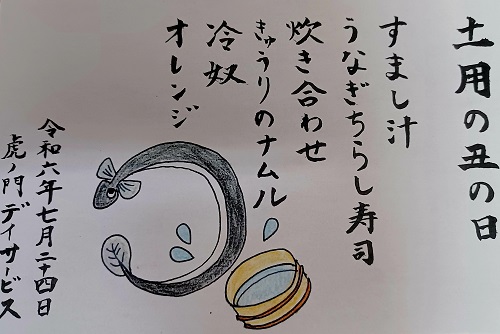 土用の丑の日
すまし汁
うなぎちらし寿司
炊き合わせ
きゅうりのナムル
冷奴
オレンジ
令和六年七月二十四日
虎ノ門デイサービス